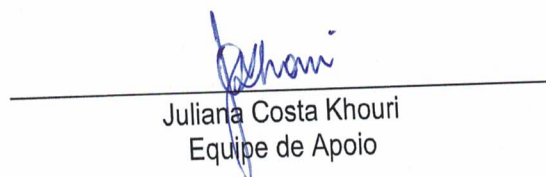 Juliana Costa Khouri
Equipe de Apoio